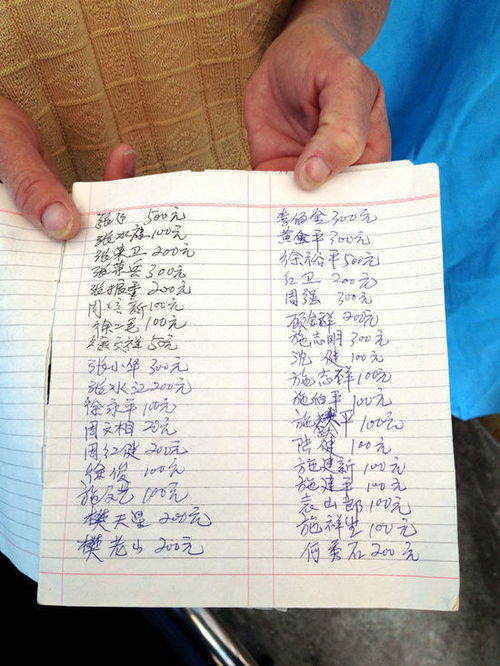 张 500元
张水 100元
张荣卫 200元
张荣兵 300元
张根 200元
周 新 100元
徐二毛 100元
徐文祥 50元
张小华 300元
张水江 200元
徐永平 100元
周文相 20元
周红健 200元
徐俊 100元
施文艺 100元
樊天星 200元
樊老山 200元
李伯全 300元
黄金平 300元
徐裕平 500元
红卫 200元
周强 300元
顾金祥 20元
施志明 300元
沈健 100元
施志祥 100元
施伯平 100元
施 平 100元
陆健 100元
施建新 100元
施建平 100元
袁山郎 100元
施祥生 100元
何秀石 200元